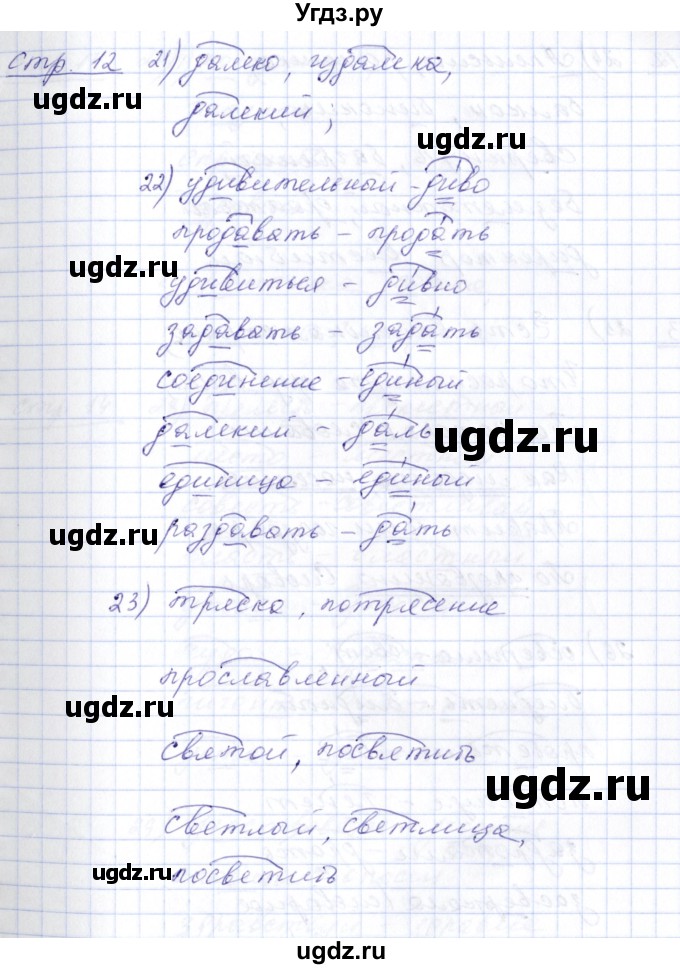 Угдз.ру
Стр. 12 21) далеко, издалека,
ugdz.ru ugdz.ru
далекий;
22) удивительный - диво
продавать - продать
ugdz.ru ugdz.ru
удивиться - дивно
задавать - задать
соединение - единый
далекий - даль
ugdz.ru
единица - единый
ugdz.ru ugdz.ru
раздавать - дать
23) тряска, потрясение
прославленный
ugdz.ru
святой, посвятить
ugdz.ru
светлый, светлица,
ugdz.ru
посветить
ugdz.ru